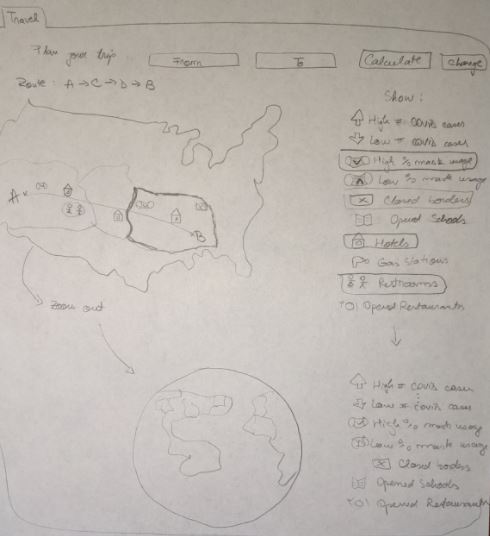 Travel
Plan your trip From To Calculate Change
Route: A → C → D → B
Show:
High # COVID cases
Low # COVID cases
High % mask usage
Low % mask usage
Closed borders
Opened Schools
Hotels
Gas stations
Restrooms
Opened Restaurants
A
B
Zoom out
High # COVID cases
Low # COVID cases
High % mask usage
Low % mask usage
Closed borders
Opened Schools
Opened Restaurants